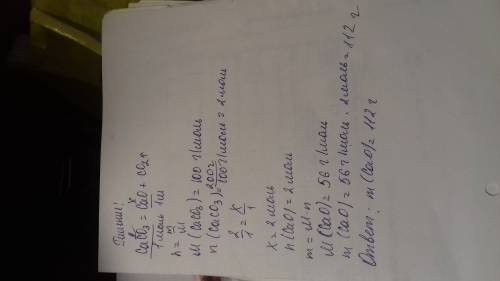 Решение:
2 x
CaCO₃ = CaO + CO₂↑
1 моль 1 м
n = m/M
M(CaCO₃) = 100 г/моль
n(CaCO₃) = 200г/100г/моль = 2 моль
2/1 = x/1
x = 2 моль
n(CaO) = 2 моль
m = M·n
M(CaO) = 56 г/моль
m(CaO) = 56 г/моль · 2 моль = 112 г
Ответ: m(CaO) = 112 г